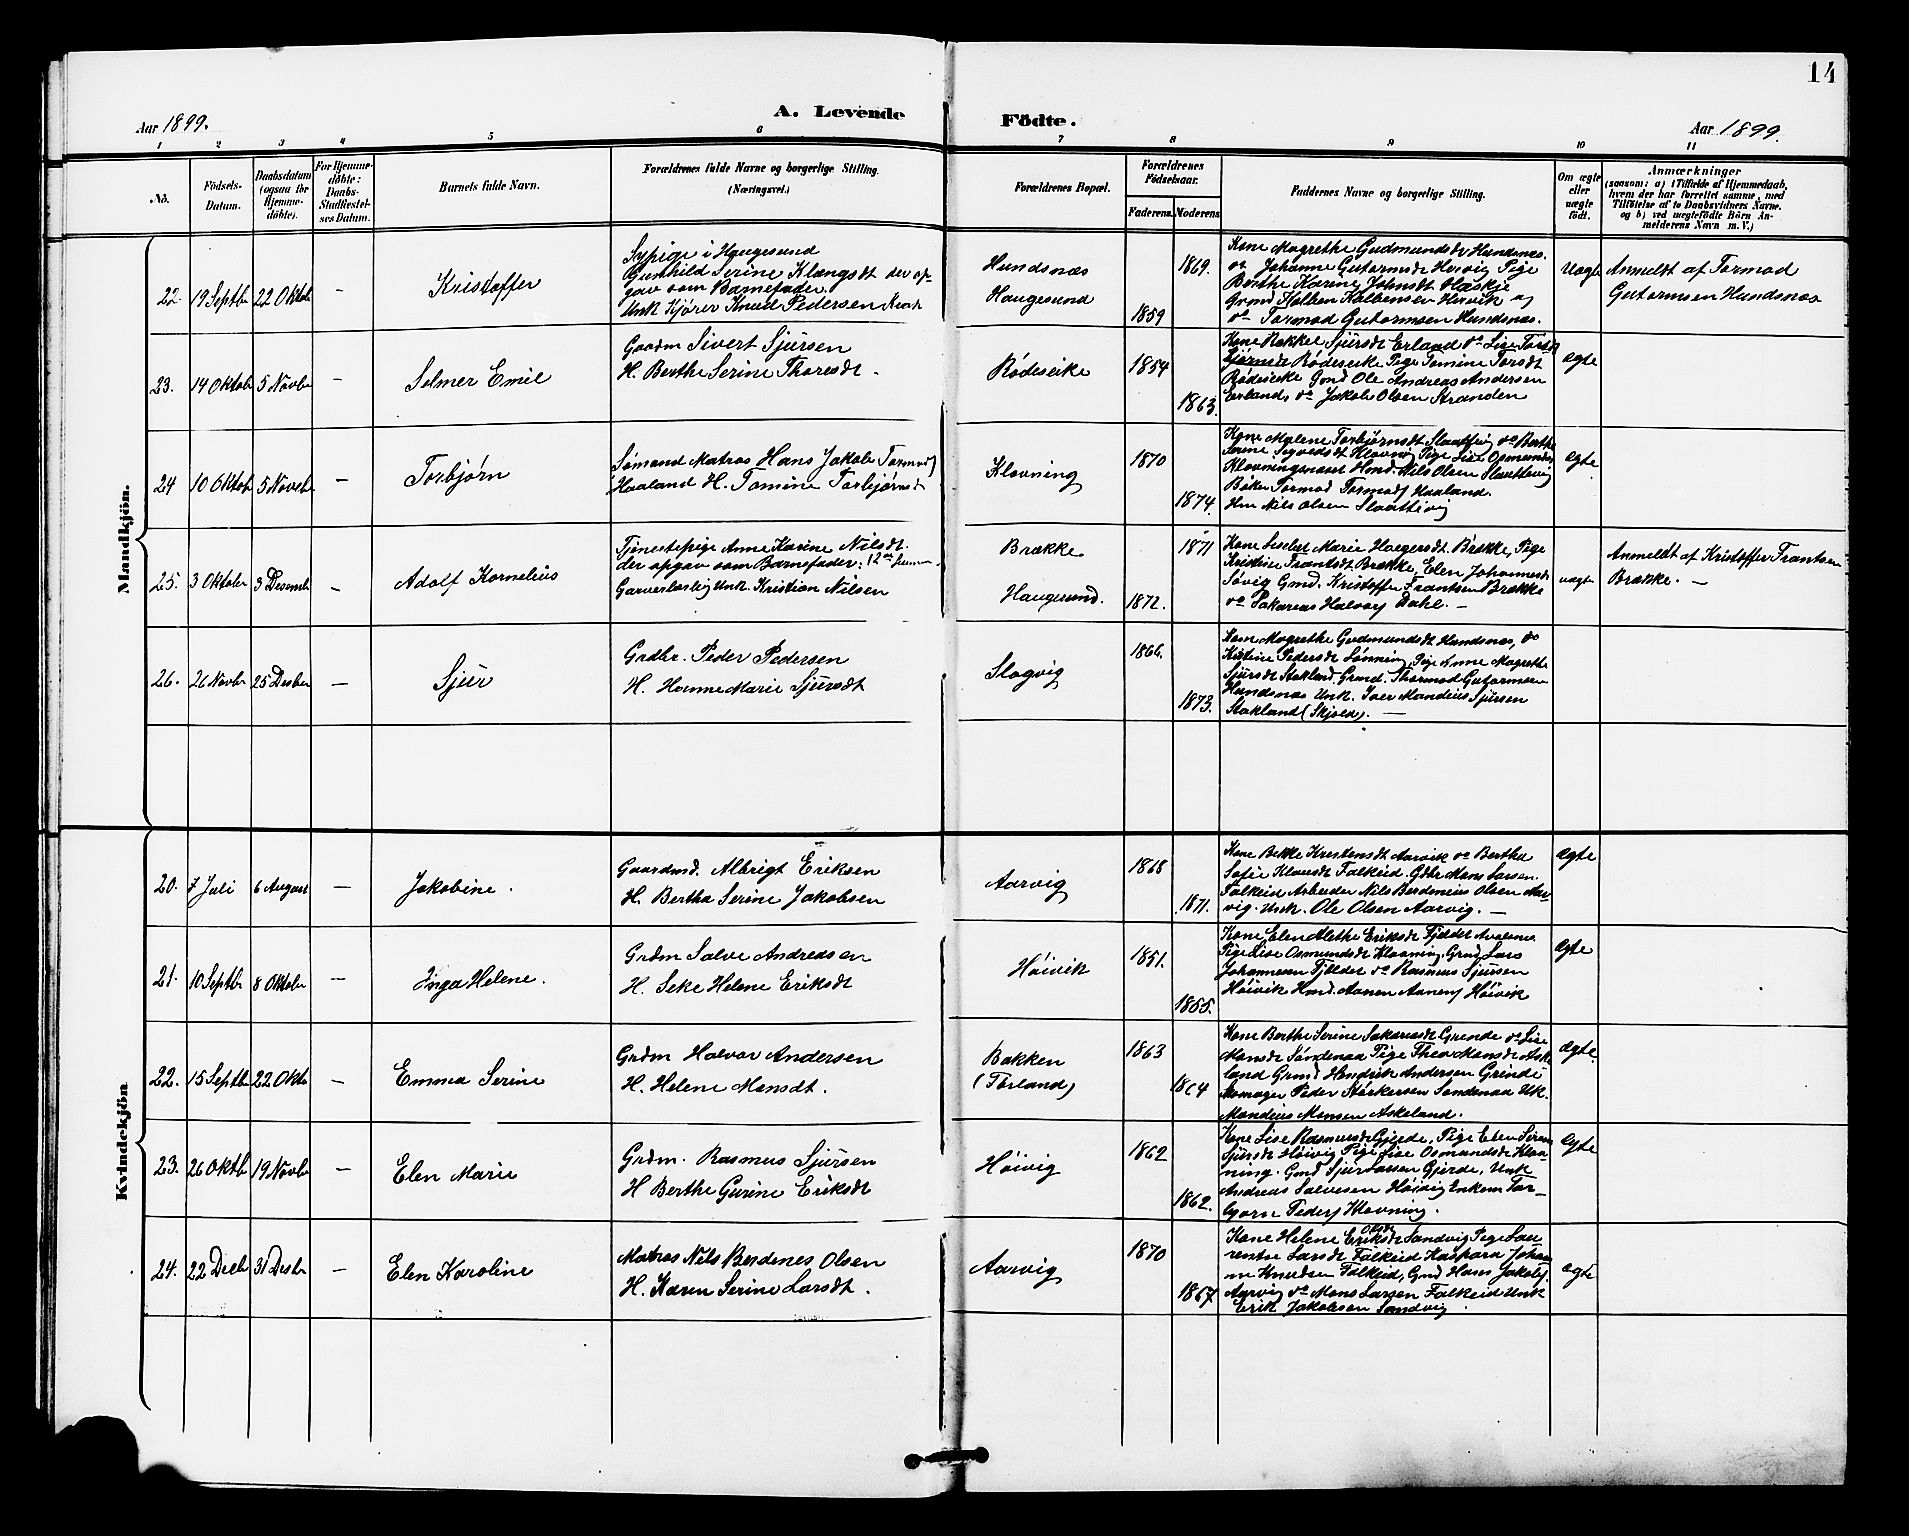 14
Aar 1899.
A. Levende Födte.
Aar 1899.
1 2 3 4 5 6 7 8 9 10 11
No.
Födsels-
Datum.
Daabsdatum
(ogsaa for
Hjemme-
döbte).
For Hjemme-
döbte:
Daabs-
Stadfæstel-
ses Datum.
Barnets fulde Navn.
Forældrenes fulde Navne og borgerlige Stilling.
(Næringsvei.)
Forældrenes Bopæl.
Forældrenes
Födselsaar.
Faderens. Moderens.
Faddernes Navne og borgerlige Stilling.
Om ægte
eller
uægte
födt.
Anmærkninger
(saasom: a) i Tilfælde af Hjemmedaab,
hvem der har forrettet samme, med
Tilföielse af to Daabsvidners Navne.
og b) ved uægtefödte Börn An-
melderens Navn m. V.)
Mandkjön.
22. 19 Septbr 22 Oktobr —
Kristoffer
Sypige i Haugesund
Gunhild Serine Klængsdt der op-
gav som Barnefader
Unk Kjører Knud Pedersen
Hundsnæs
Haugesund
1869.
1859
Kone Magrethe Gudmundsdt Hundsnæs.
do Johanne Gutormsdt Hervig Pige
Berthe Karine Johnsdt
Grmd Kolben Kolbensen Hervik og
do Tormod Gutormsen Hundsnæs.
Uægte
Anmeldt af Tormod
Gutormsen Hundsnæs
23. 14 Oktobr 5 Novbr —
Selmer Emil
Gaardm Sivert Sjursen
H. Berthe Serine Thoresdt.
Rødeseike
1854
1863.
Kone Rakkel Sjursdt Erland do Lise Torb-
jørnsdt Rødseike Pige Tomine Torsdt
Rødseike Gmd Ole Andreas Andersen
Erland, do Jakob Olsen Stranden
ægte
24 10 Oktob 5 Novbr —
Torbjørn
Sømand Matros Hans Jakob Tormods
Haaland H. Tomine Torbjørnsdt
Klovning
1870
1874.
Kone Malene Torbjørnsdt Slaattevig do Berthe
Serine Sigvedsdt Klovning Pige Lise Osmundsdt
Klovningsnæset Hmd. Nils Olsen Slaattevig
Tormod Tormods Haaland.
Hm Nils Olsen Slaattevig
ægte
25. 3 Oktober 3 Desembr —
Adolf Kornelius
Tjenestepige Anne Karine Nilsdt.
der opgav som Barnefader:
Garverlærling Unk. Kristian Nilsen
Brække
Haugesund.
1871
1872.
Kone Liselet Marie Haagensdt Brække, Pige
Kristine Frantsdt Brække, Elen Johannesdt
Søvig Gmd. Kristoffer Frantsen Brække
do Sakarias Halvors Dahl. —
uægte
Anmeldt af Kristoffer Frantsen
Brække. —
26. 26 Novbr 25 Desbr —
Sjur
Grdbr. Peder Pedersen
H. Hanne Marie Sjursdt
Slogvig
1866.
1873.
Kone Magrethe Gudmundsdt Hundsnæs, do
Kistine Pedersdt Lønning, Pige Anne Magrethe
Sjursdt Stakland. Grmd. Thormod Gutormsen
Hundsnæs Unk. Iver Mandius Sjursen
Stakland (Skjold). —
Kvindekjön
20. 7 Juli 6 August —
Jakobine.
Gaardmd. Albrigt Eriksen
H. Bertha Serine Jakobsen
Aarvig
1868
1871.
Kone Bekke Kristensdt Aarvik do Bertha
Sofie Klausdt Falkeid Gdbr Mons Larsen
Falkeid Arbeider Nils Berdinius Olsen Aar-
vig. Unk. Ole Olsen Aarvig. —
ægte
21. 10 Septbr 8 Oktobr —
Inga Helene.
Grdm Salve Andreasen
H. Seke Helene Eriksdt
Høivik
1851.
1855.
Kone Elen Alethe Eriksdt Fjeldet Avaldsnæs
Pige Lise Osmundsdt Klovning. Grmd Lars
Johannesen Fjeldet do Rasmus Sjursen
Høivik Hmd. Aanen Aanens Høivik
ægte
22. 15 Septbr 22 Okt —
Emma Serine
Grdm Halvor Andersen
H. Helene Monsdt.
Bakken
(Førland)
1863
1864
Kone Berthe Serine Sakariasdt Grinde do Lise
Monsdt Søndenaa Pige Thea Monsdt Aske-
land Grmd Hendrik Andersen Grinde
Skomager Peder Størkersen Søndenaa Uk.
Mandius Monsen Askeland.
ægte.
23. 26 Oktb 19 Novbr —
Elen Marie
Grdm. Rasmus Sjursen
H Berthe Gurine Eriksdt
Høivig
1862
1862.
Kone Lise Rasmusdt Gjerde, Pige Elen Serine
Sjursdt Høivig Pige Lise Osmundsdt Klov-
ning. Gmd Sjur Larsen Gjerde, Unk
Andreas Salvesen Høivig Enkem Tor-
bjørn Peders Klovning.
ægte
24. 22 Decbr 31 Desbr —
Elen Karoline
Matros Nils Berdenes Olsen
H. Karen Serine Larsdt.
Aarvig
1870
1867
Kone Helene Eriksdt Olsdt Sandvig Pige Lau-
rentse Larsdt Falkeid Kaspara Johan-
ne Knudsen Falkeid, Gmd Hans Jakobs.
Aarvig do Mons Larsen Falkeid Unk
Erik Jakobsen Sandvig.
ægte